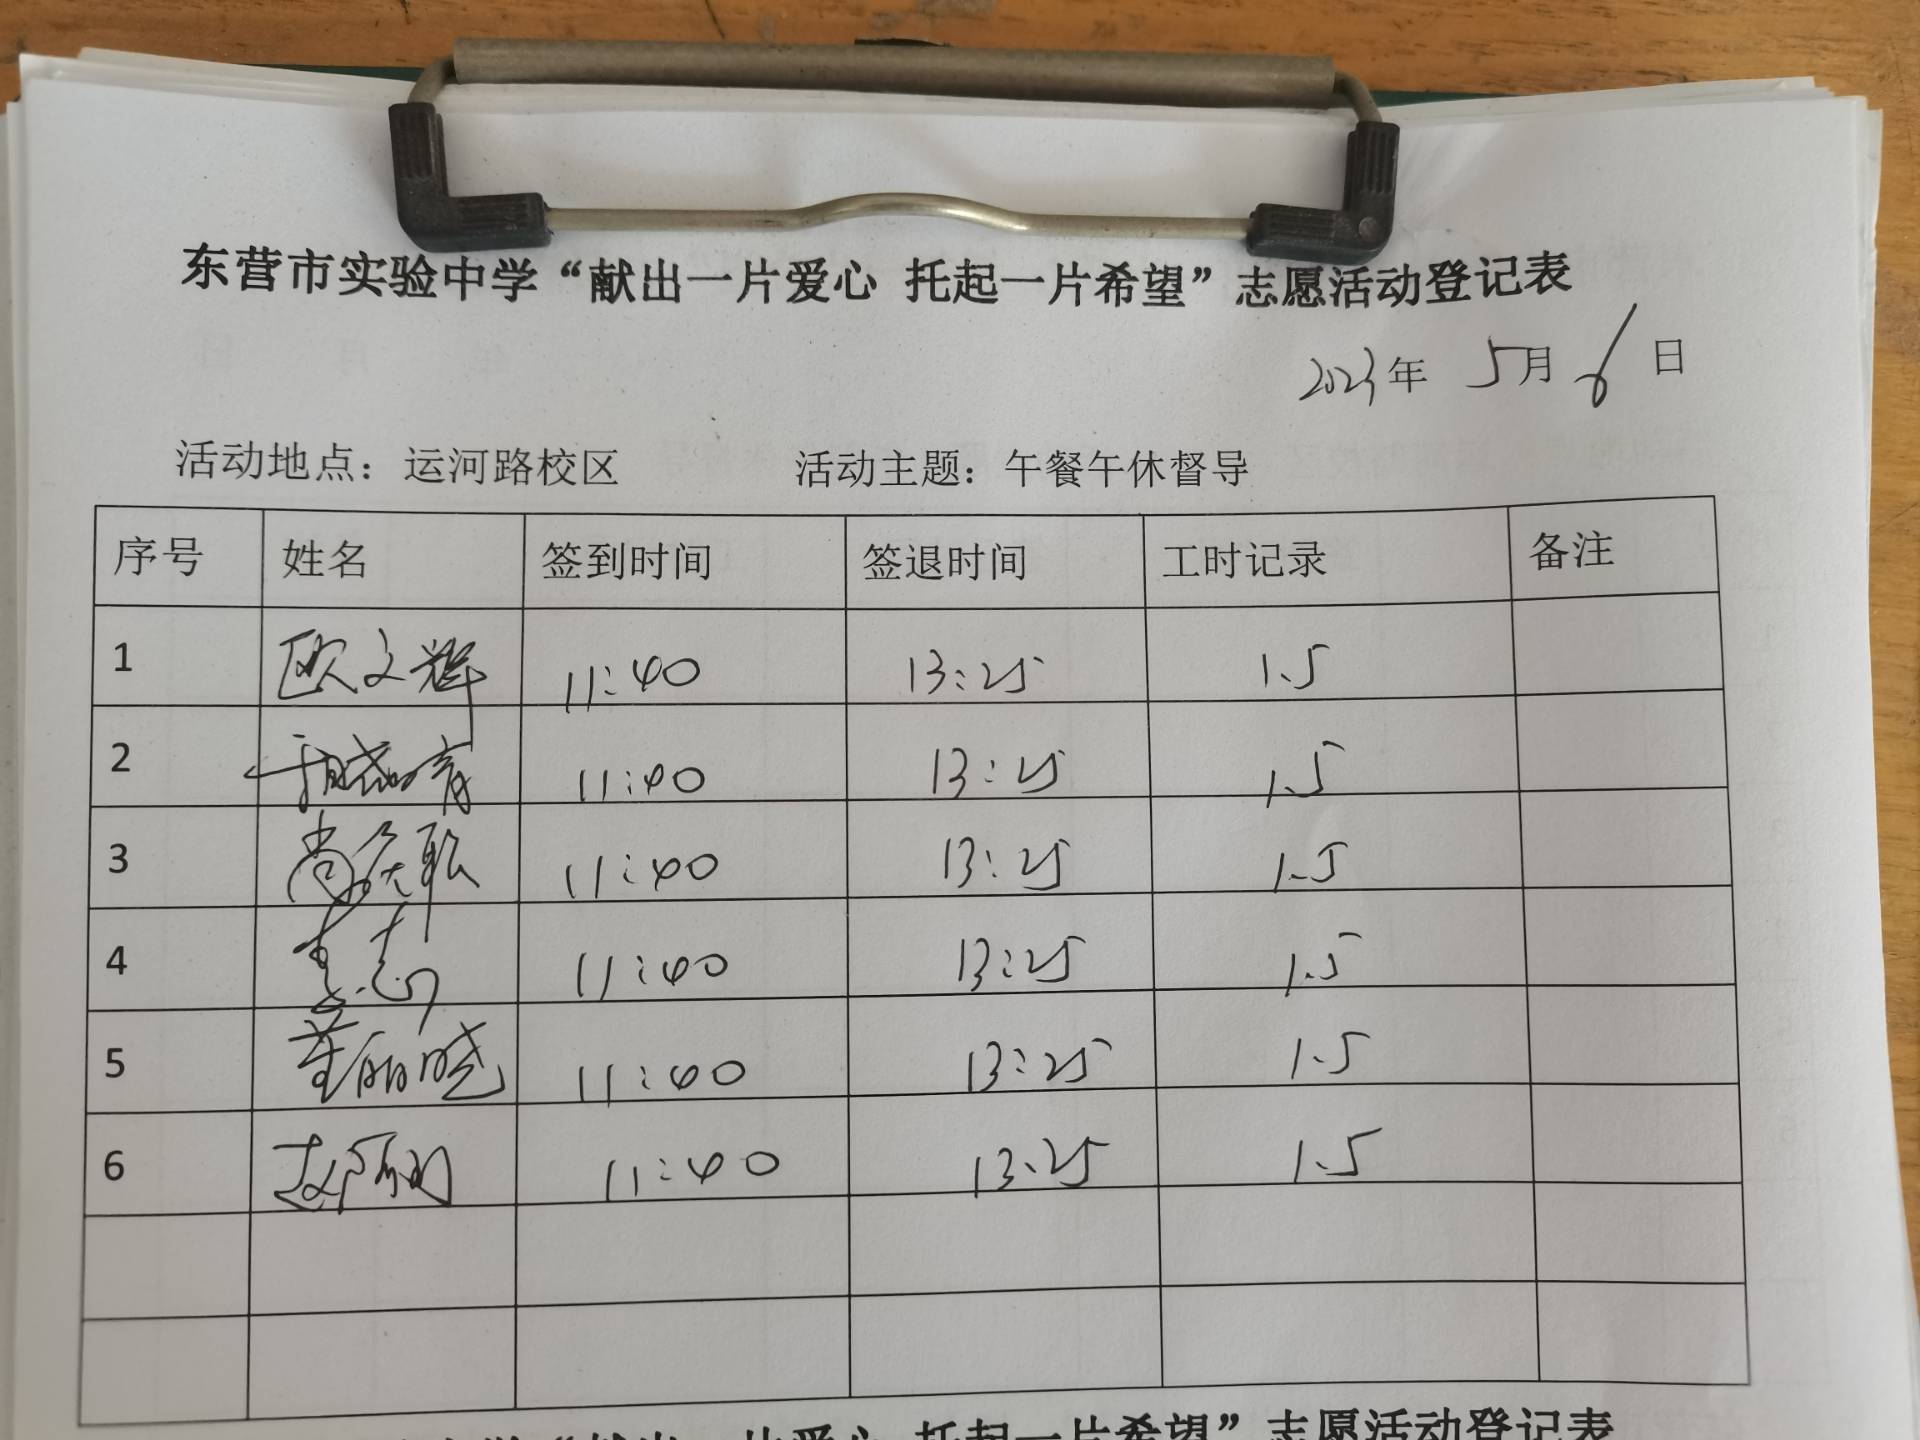 东营市实验中学“献出一片爱心 托起一片希望”志愿活动登记表
2023年 5月 6日
活动地点：运河路校区 活动主题：午餐午休督导
序号 姓名 签到时间 签退时间 工时记录 备注
1 欧文辉 11:40 13:25 1.5
2 11:40 13:25 1.5
3 11:40 13:25 1.5
4 11:40 13:25 1.5
5 董丽晓 11:40 13:25 1.5
6 11:40 13.25 1.5
托起一片希望”志愿活动登记表